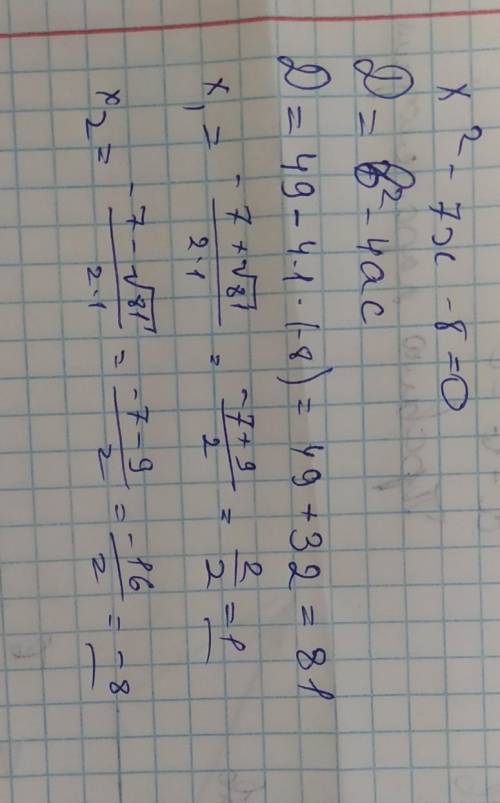 x² - 7x - 8 = 0
D = b² - 4ac
D = 49 - 4·1·(-8) = 49 + 32 = 81
x₁ = (-7 + √81)/(2·1) = (-7 + 9)/2 = 2/2 = 1
x₂ = (-7 - √81)/(2·1) = (-7 - 9)/2 = -16/2 = -8